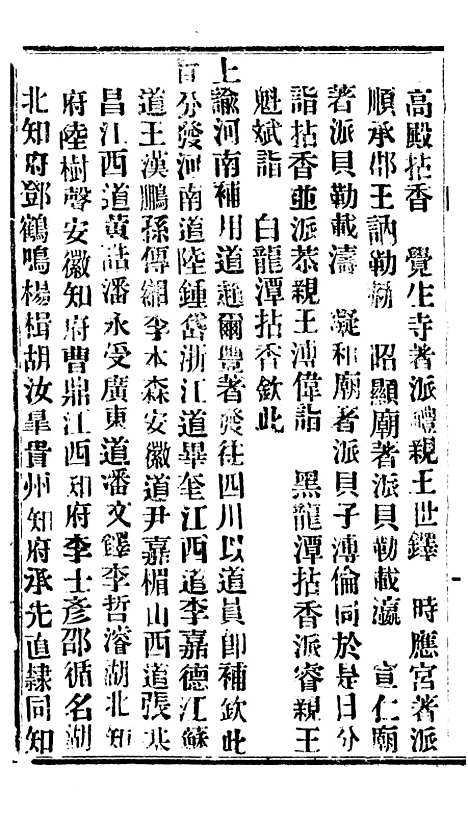 高殿拈香　覺生寺著派禮親王世鐸　時應宮著派
順承郡王訥勒赫　昭顯廟著派貝勒載瀛　宣仁廟
著派貝勒載濤　凝和廟著派貝子溥倫同於是日分
詣拈香並派恭親王溥偉詣　黑龍潭拈香派睿親王
魁斌詣　白龍潭拈香欽此
上諭河南補用道趙爾豐著發往四川以道員卽補欽此
百分發河南道陸鍾岱浙江道畢奎江西道李嘉德江蘇
道王漢鵬孫傳 李本森安徽道尹嘉楣山西道張
昌江西道黃誥潘永受廣東道潘文鐸李哲濬湖北知
府陸樹聲安徽知府曹鼎江西知府李士彥邵循名湖
北知府鄧鶴鳴楊楫胡汝臯貴州知府承先直隸同知